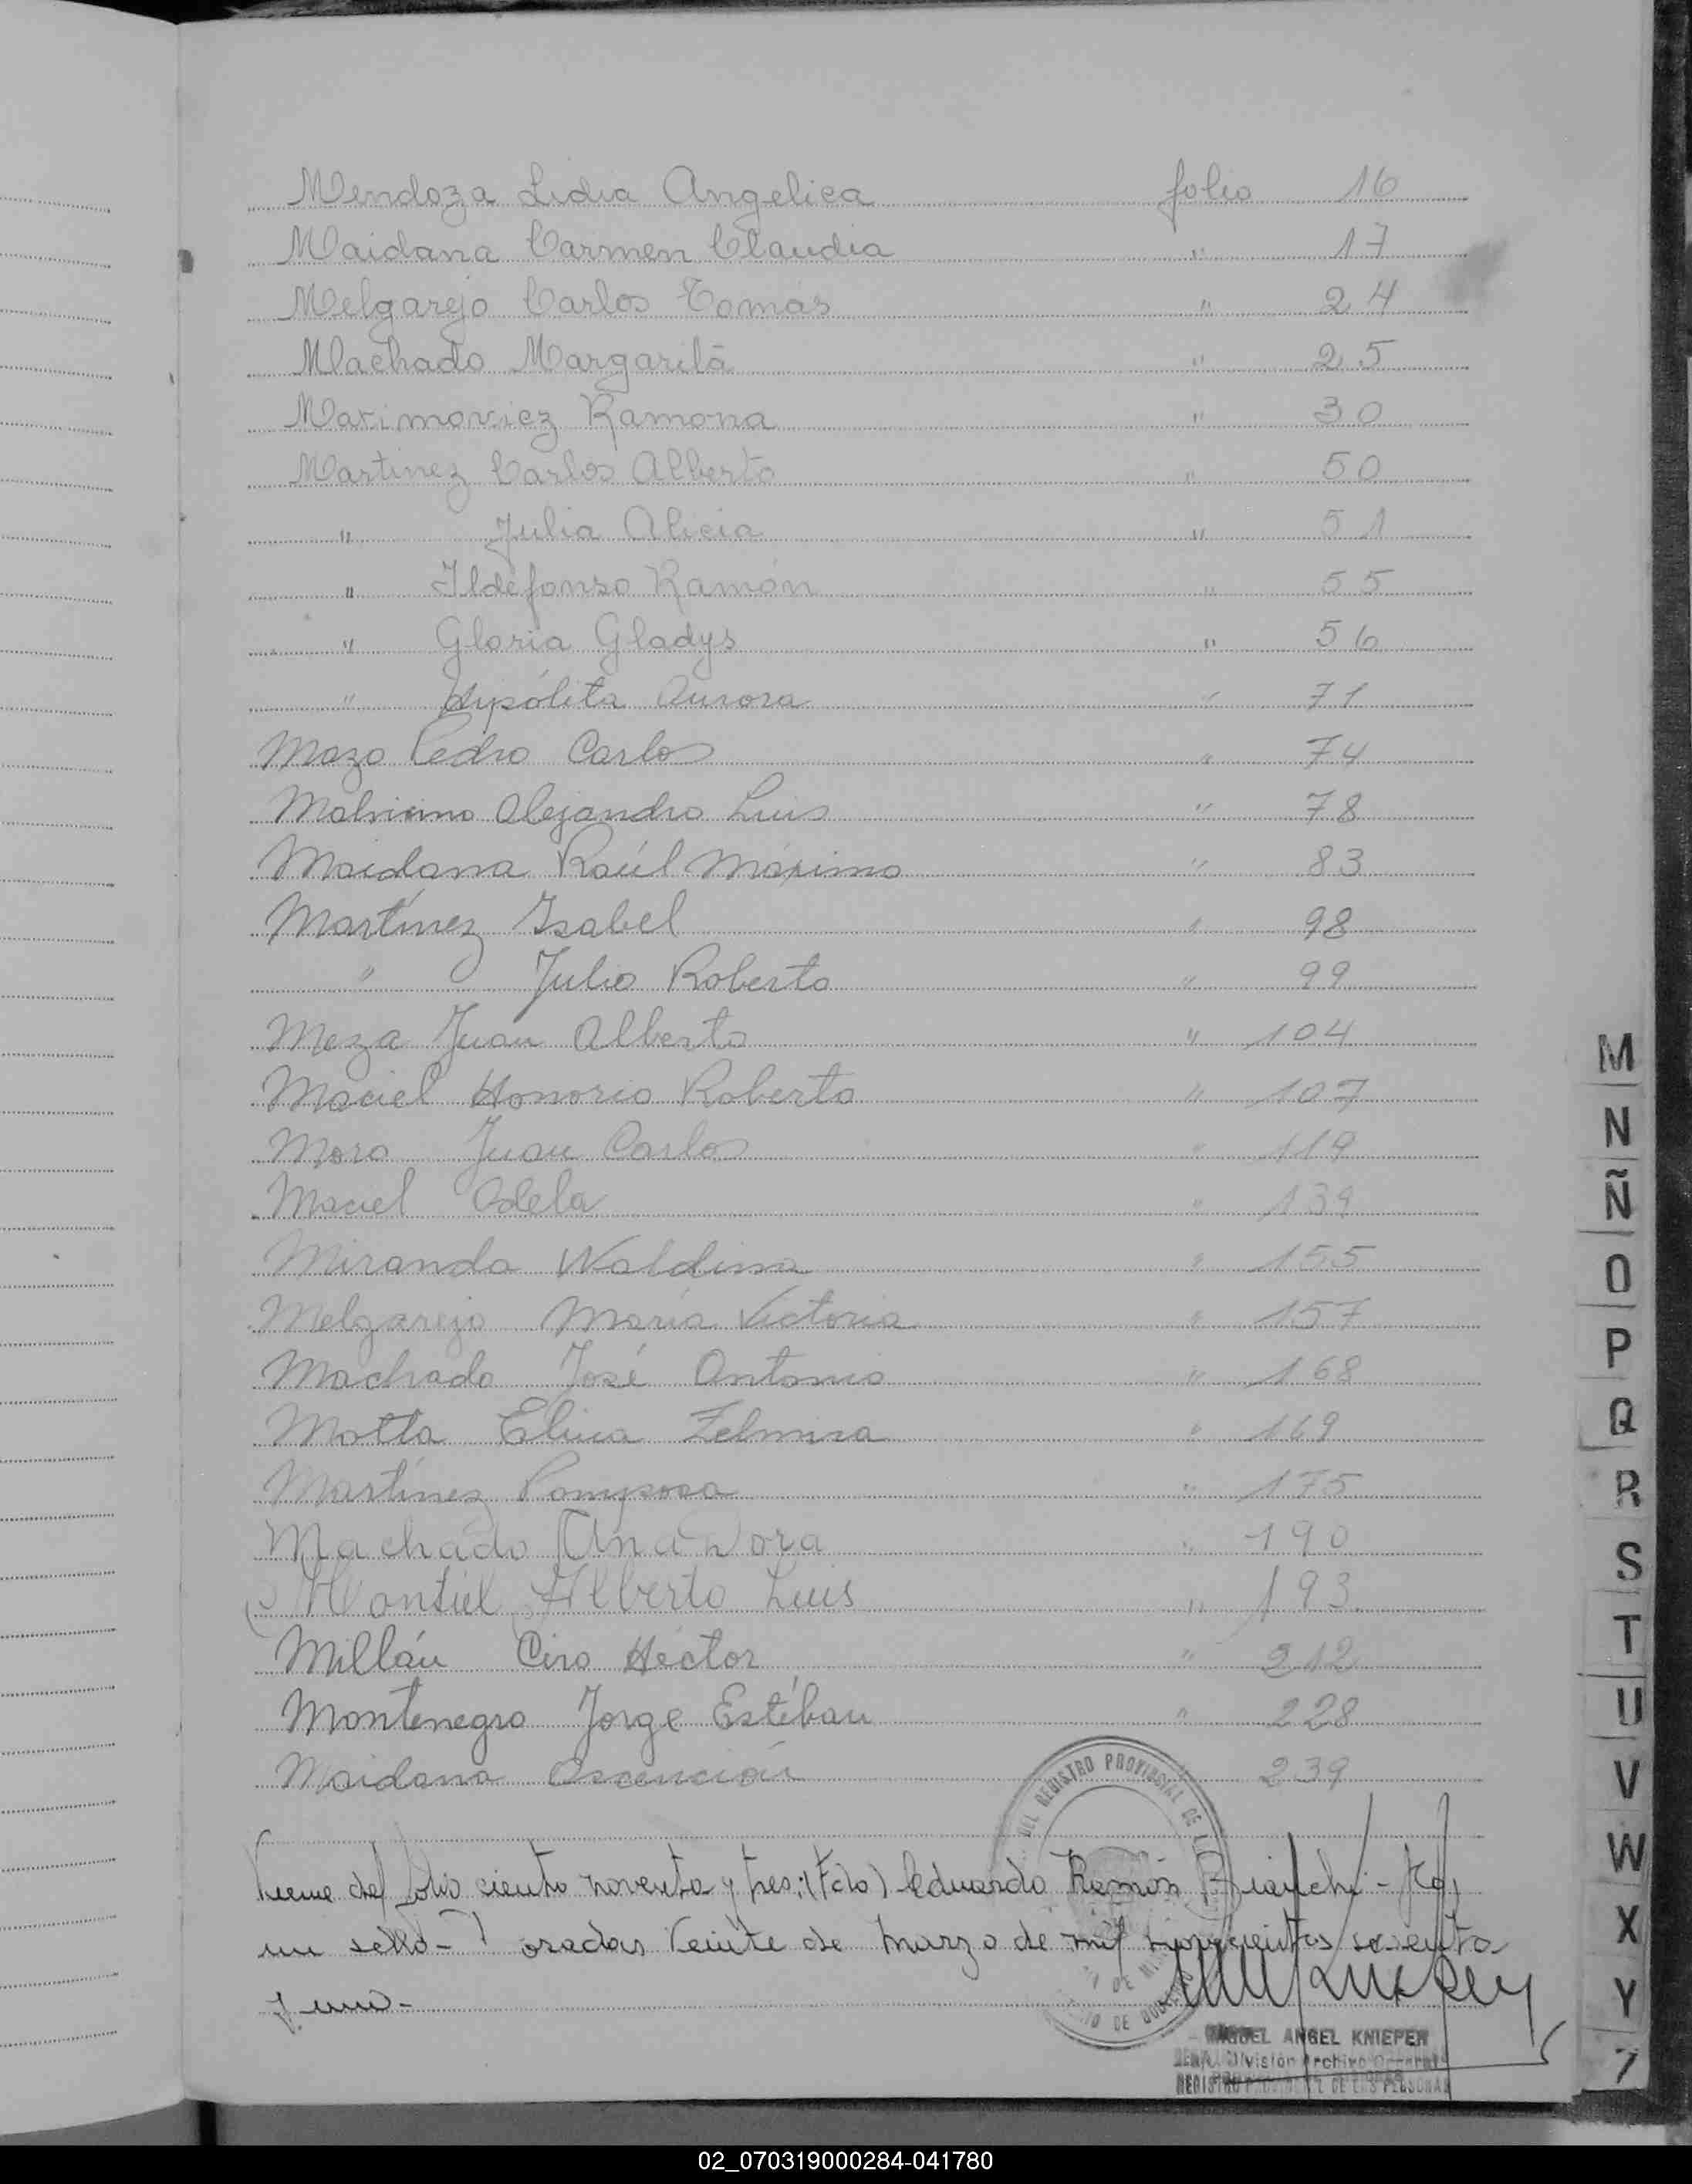 Mendoza Lidia Angelica folio 16
Maidana Carmen Claudia " 17
Melgarejo Carlos Tomás " 24
Machado Margarita " 25
Maximoviez Ramona " 30
Martinez Carlos Alberto " 50
" Julia Alicia " 51
" Ildefonso Ramón " 55
" Gloria Gladys " 56
" Hypólita Aurora " 71
Mazo Pedro Carlos " 74
Alejandro Luis " 78
Maidana Raúl Máximo " 83
Martínez Isabel " 98
" Julio Roberto " 99
Meza Juan Alberto " 104
Maciel Honorio Roberto " 107
Mora Juan Carlos " 119
Maciel Adela " 139
Miranda Waldina " 155
Melgarejo María Victoria " 157
Machado José Antonio " 168
Motta Elina Zelmira " 169
Martínez Pomposa " 175
Machado Ana Dora " 190
Montiel Alberto Luis " 193
Millán Ciro Héctor " 212
Montenegro Jorge Estéban " 228
Maidana Ascención 239
DEL REGISTRO PROVINCIAL DE
Viene del folio ciento noventa y tres:(Fdo) Eduardo Ramón Bianchi - Hay
un sello - Posadas veinte de marzo de mil novecientos sesenta
y uno -
MIGUEL ANGEL KNIEPER
División Archivo General
REGISTRO PROVINCIAL DE LAS PERSONAS
M
N
Ñ
O
P
Q
R
S
T
U
V
W
X
Y
Z
02_070319000284-041780